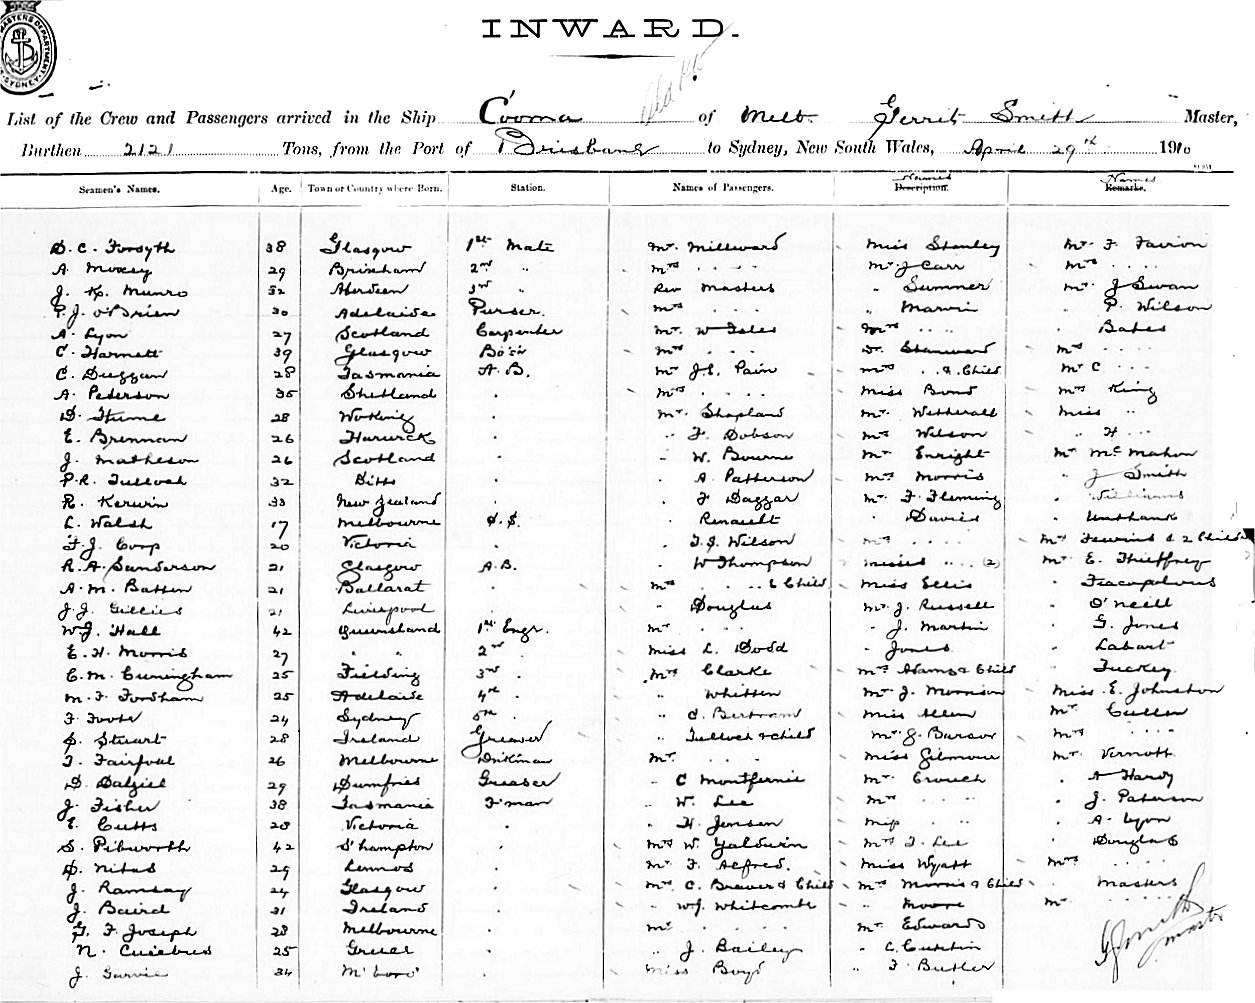 MASTERS DEPARTMENT SYDNEY
INWARD.
List of the Crew and Passengers arrived in the Ship Cooma of Melb. Gerrit Smith Master,
Burthen 2121 Tons, from the Port of Brisbane to Sydney, New South Wales, April 29th 1910
Seamen's Names. Age. Town or Country where Born. Station. Names of Passengers. Names Description. Names Remarks.
D. C. Forsyth 38 Glasgow 1st Mate Mr. Millward Miss Stanley Mr. F. Fairon
A. Moxey 29 Brixham 2nd " Mrs . . . . Mr J Carr Mrs . . . .
J. K. Munro 32 Aberdeen 3rd " Rev Masters " Summer Mr. J Swan
P. J. O'Brien 30 Adelaide Purser. Mrs . . . . " " P. Wilson
A. Lyon 27 Scotland Carpenter Mr. W Isles Mrs . . . . " Bates
C. Harnett 39 Glasgow Bo's'n Mrs . . . Dr. Stanward Mrs . . . .
C. Duggan 28 Tasmania A.B. Mr J.C. Pain Mrs . . & Child Mr C . . .
A. Pederson 35 Shetland . Mrs . . . . Miss Bond Mrs King
D. Hume 28 Woking . Mr. Shapland Mr. Wetherall Miss "
E. Brennan 26 Harwick . " F. Dobson Mr Wilson " H . . .
J. Matheson 26 Scotland . " W. Bourne Mr. Enright Mr McMahon
P. R. Tulloch 32 Ditto . " A Patterson Mrs Morris " J Smith
R. Kerwin 33 New Zealand . " F Daggar Mr. F. Fleming . Williams
L. Walsh 17 Melbourne O.S. . Renault . Davies . Unthank
F. J. Corp 20 Victoria . . T. J. Wilson Mrs . . . . Mrs & 2 Childn
R. A. Sanderson 21 Glasgow A.B. . W Thompson Misses . . . (2) Mr. E. Thieffrey
A. M. Batten 21 Ballarat . Mrs . . . & Child Miss Ellis .
J. J. Gillies 21 Liverpool . . Douglas Mr. J. Russell . O'Neill
W. J. Hall 42 Queensland 1st Engr. Mr . . . " J. Martin . G. Jones
E. H. Morris 27 " " 2nd . Miss L. Dodd . Jones .
C. M. Cuningham 25 Feilding 3rd . Mrs Clarke Mrs & Child . Tuckey
M. F. Fordham 25 Adelaide 4th . " Whitten Mr J. Morrison Miss E. Johnston
F. Foote 24 Sydney 5th . " C. Bertram Miss Allen Mr Cullen
S. Stuart 28 Ireland Greaser " Tulloch & Child Mr. J. Mrs . . . .
T. Fairfoul 26 Melbourne Dnkman Mr. . . . Miss Gilmour Mr. Vernott
D. Dalziel 29 Dumfries Greaser " C Mr. Crouch . A Hardy
J. Fisher 38 Tasmania F-man " W. Lee Mrs . . . . . J. Paterson
E. Cutts 28 Victoria . . H. Jensen Miss . . . . A. Lyon
S. Pibworth 42 S'hampton . Mrs W. Yaldwin Mrs F. Lee . Douglas
D. Nitas 29 Lemnos . Mr. F. Alfred. Miss Wyatt Mrs . . . .
J. Ramsay 24 Glasgow . Mrs C. Beaver & Child Mrs Morris & Child . Masters
J. Baird 31 Ireland . " W. J. Whitcombe " Moore Mr . . . . .
G. F. Joseph 28 Melbourne . Mr. . . . . Mr Edwards
N. 25 Greece . " J. Bailey " C.
J. Jarvie 34 . Miss Boyd " F Butler
G Smith
Master